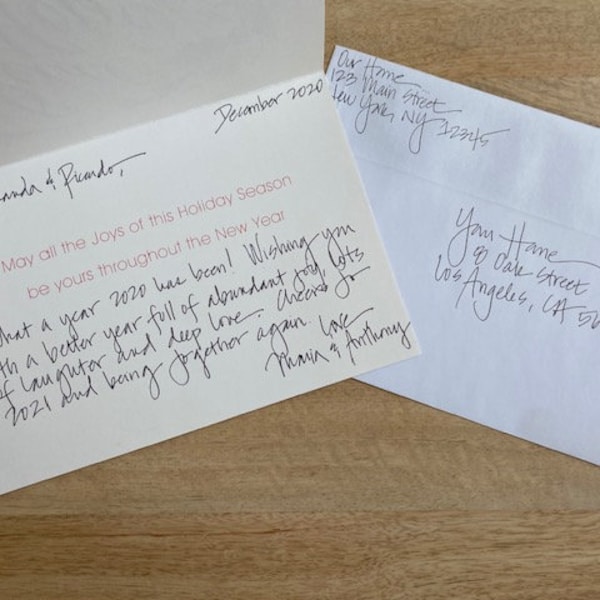 December 2020
anda & Ricardo,
May all the Joys of this Holiday Season
be yours throughout the New Year
hat a year 2020 has been! Wishing you
th a better year full of abundant joy, lots
of laughter and deep love. Cheers to
2021 and being together again. Love
Maria & Anthony
Our Home
123 Main Street
New York, NY 12345
Your Home
Oak Street
Los Angeles, CA